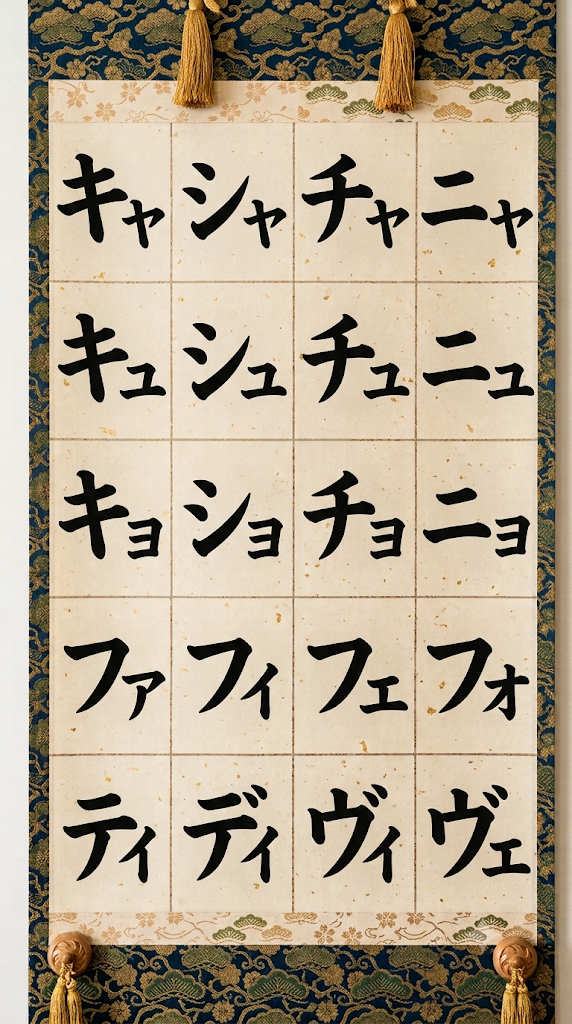 キャ シャ チャ ニャ
キュ シュ チュ ニュ
キョ ショ チョ ニョ
ファ フィ フェ フォ
ティ ディ ヴィ ヴェ